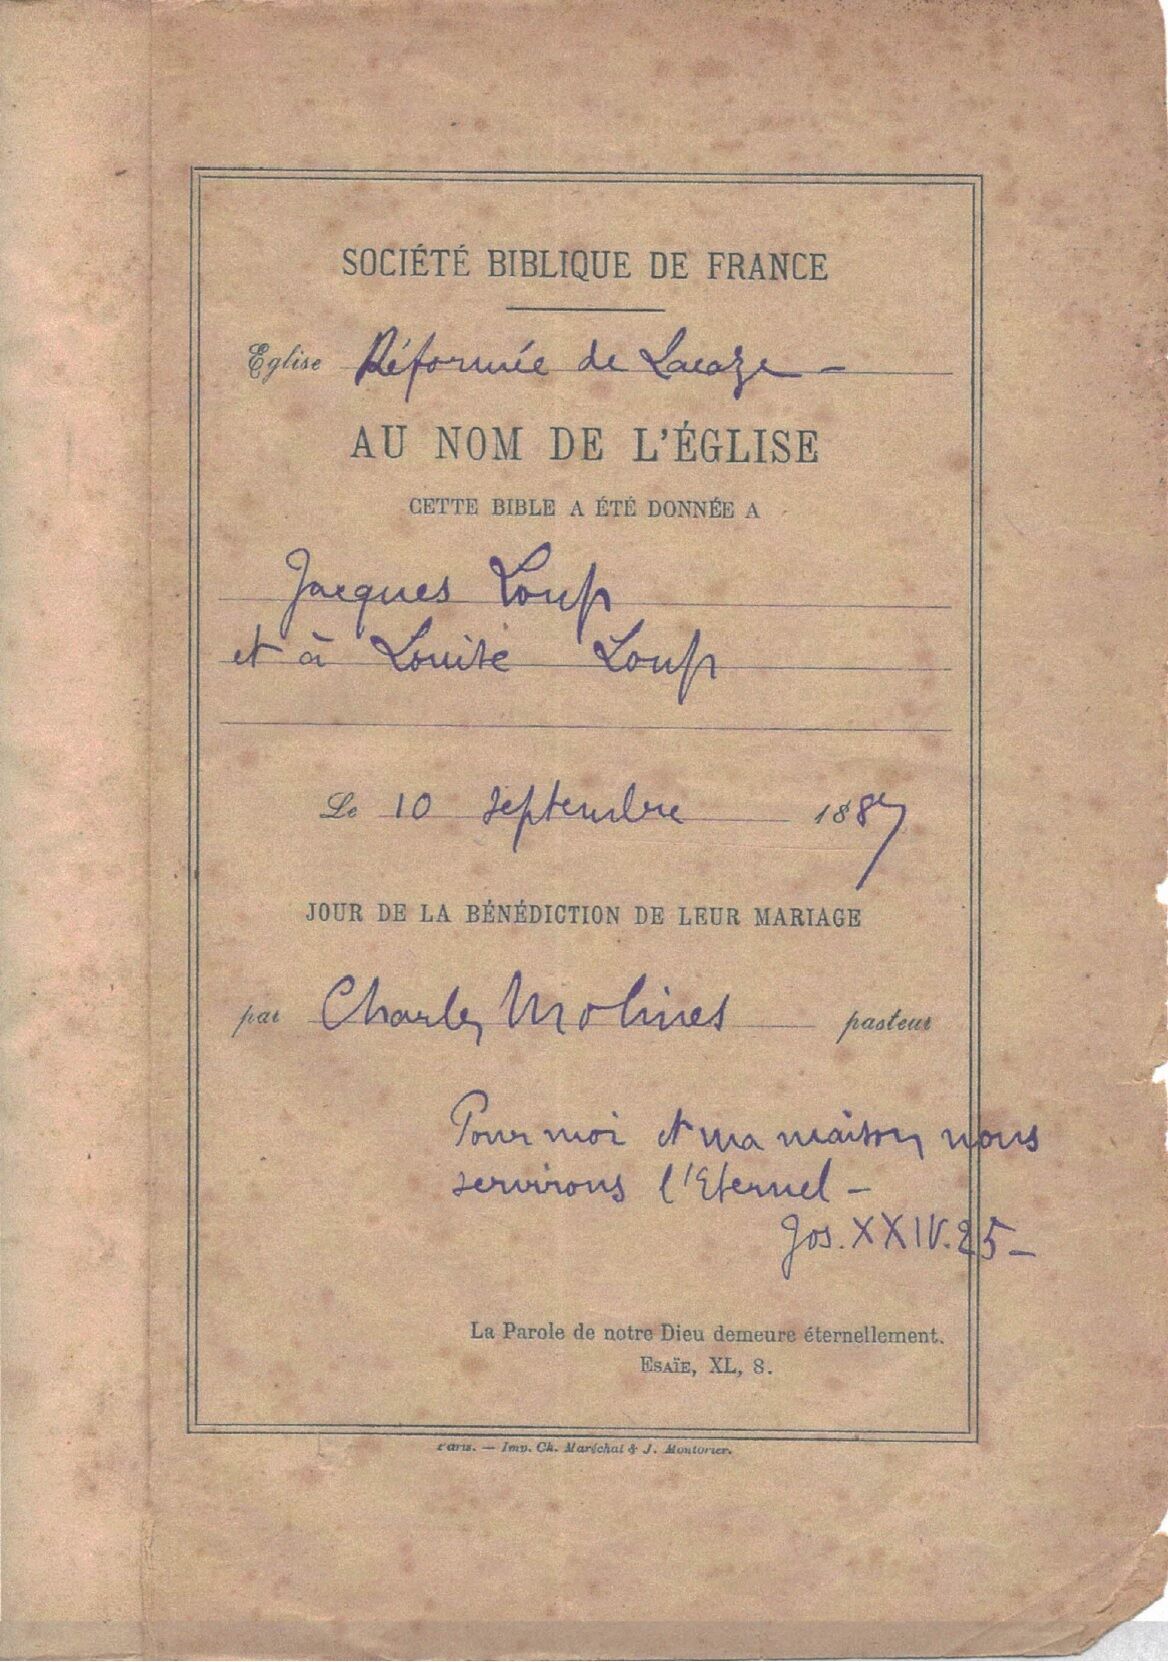 SOCIÉTÉ BIBLIQUE DE FRANCE
Eglise Réformée de Lacaze –
AU NOM DE L'ÉGLISE
CETTE BIBLE A ÉTÉ DONNÉE A
Jacques Loup
et à Louise Loup
Le 10 septembre 1887
JOUR DE LA BÉNÉDICTION DE LEUR MARIAGE
par Charles Molines pasteur
Pour moi et ma maison, nous
servirons l'Eternel –
Jos. XXIV. 25 –
La Parole de notre Dieu demeure éternellement.
ESAÏE, XL, 8.
Paris. — Imp. Ch. Maréchal & J. Montorier.